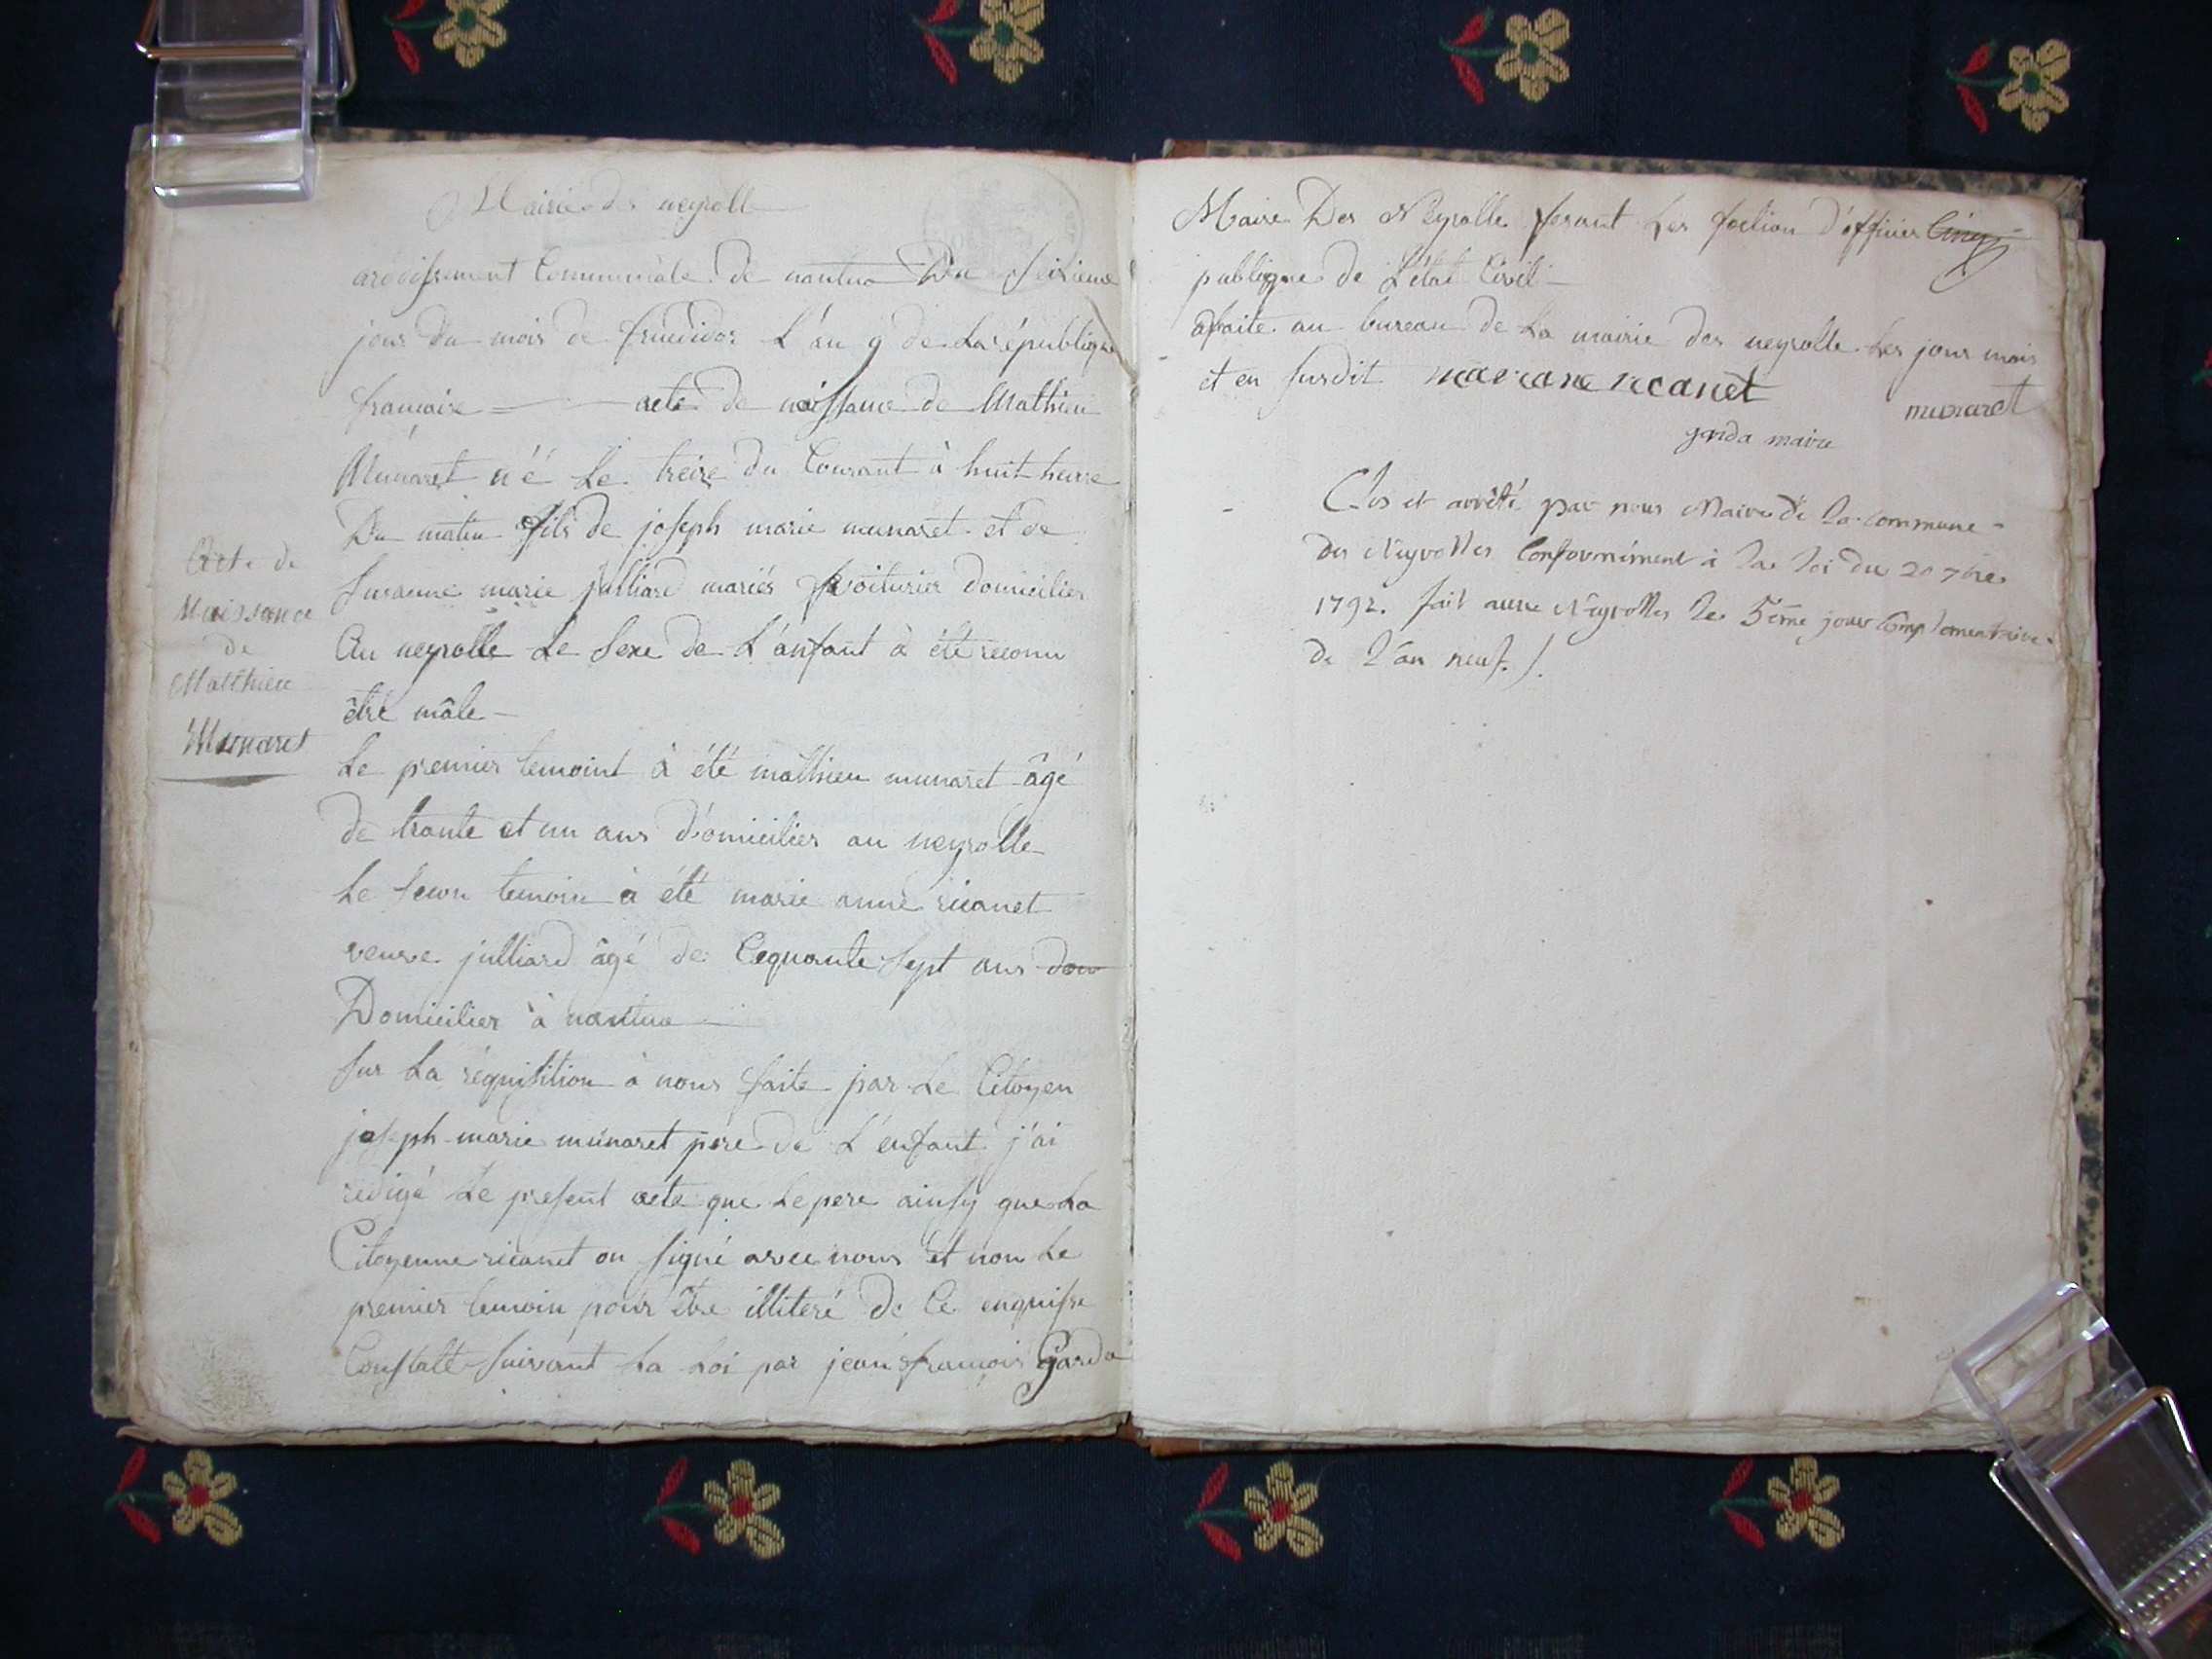 Mairie des neyrolle
arodissement Communale de nantua Du seizieme
jour du mois de fructidor L'an 9 de La république
francaise acte de naissance de Mathieu
Munaret né Le treize du Courant à huit heure
Du matin fils de joseph marie munaret et de
Susanne marie julliard mariés voiturier domicilier
Au neyrolle Le sexe de L'anfant à été reconu
être mâle
Acte de
Naissance
de
Matthieu
Munaret
Le premier temoint à été mathieu munaret âgé
de trante et un ans domicilier au neyrolle
Le secon temoin à été marie anne ricanet
veuve julliard âgé de Cequante sept ans dom
Domicilier à nantua
sur La réquisition à nous faite par Le Citoyen
joseph marie munaret pere de L'enfant j'ai
redigé Le present acte que Le pere ainsy que La
Citoyenne ricanet on signé avec nous et non Le
premier temoin pour être illiteré de Ce enquise
Constatté suivant La Loi par jean françois Garda
Maire Des Neyrolle fesant Les foction d'officier
publique de L'état Civil
faite au bureau de La mairie des neyrolle Les jour mois
et en susdit mariane ricanet
munaret
garda maire
Clos et arrêté par nous Maire de la commune
des Neyrolles Conformément à la loi du 20 7bre
1792. fait aux Neyrolles le 5eme jour Complementaire
de l'an neuf.